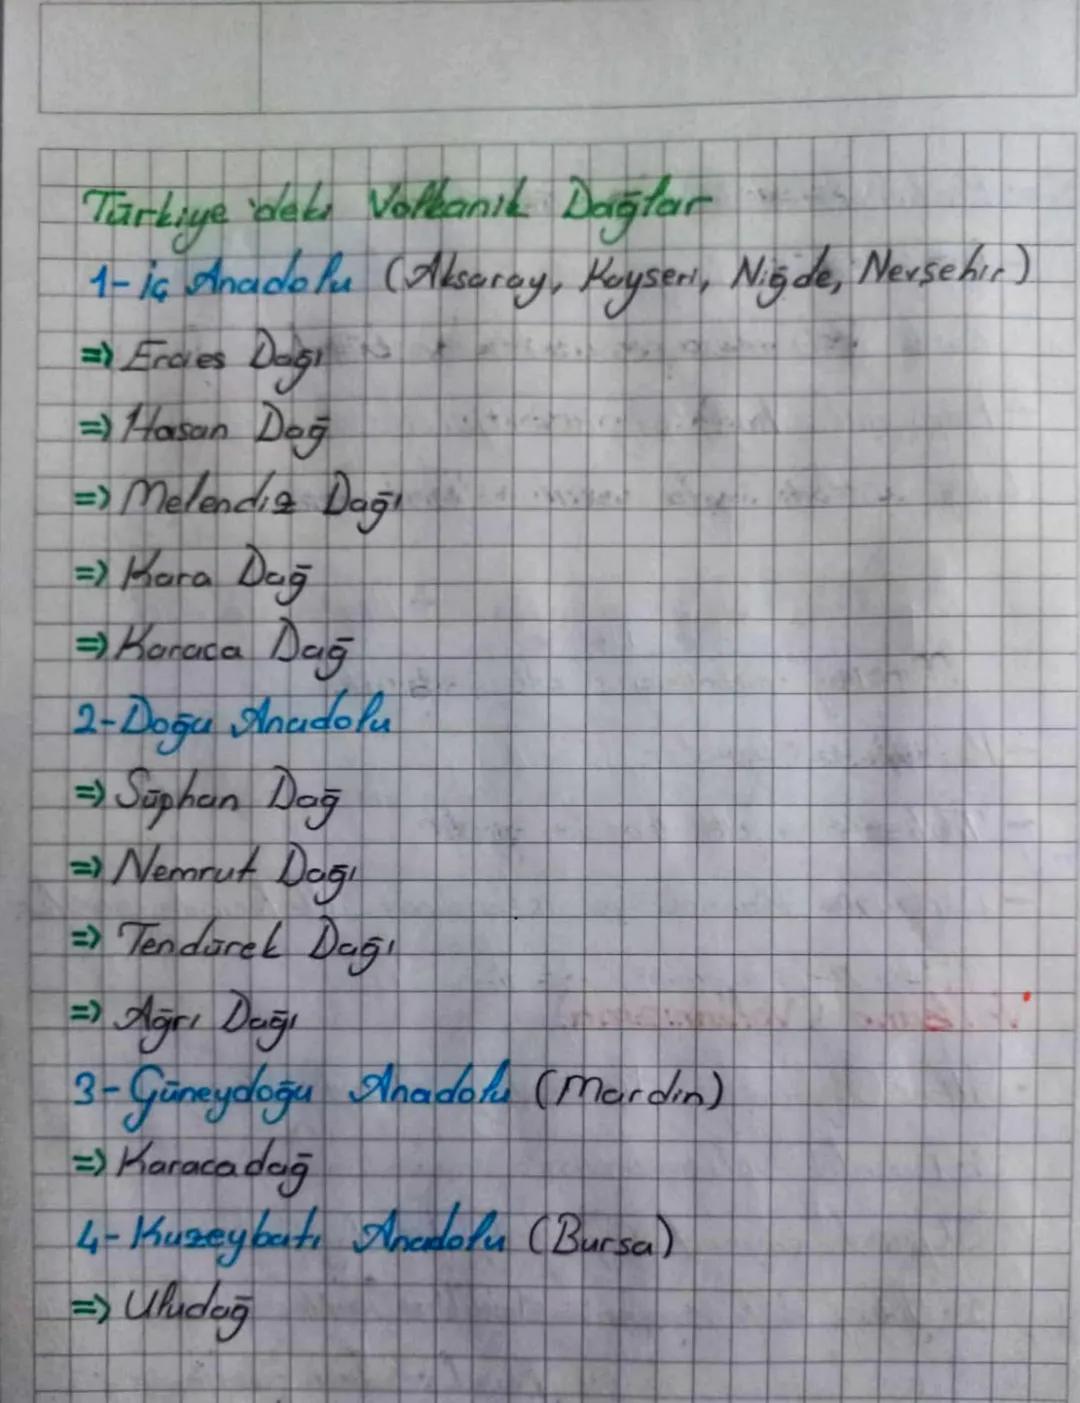 Türkiye'deki Volkanik Dağlar
1- İç Anadolu (Aksaray, Kayseri, Niğde, Nevşehir)
=> Ercies Dağı
=> Hasan Dağ
=> Melendiz Dağı
=> Kara Dağ
=> Karaca Dağ
2- Doğu Anadolu
=> Süphan Dağ
=> Nemrut Dağı
=> Tendürek Dağı
=> Ağrı Dağı
3- Güneydoğu Anadolu (Mardin)
=> Karacadağ
4- Kuzeybatı Anadolu (Bursa)
=> Uludağ